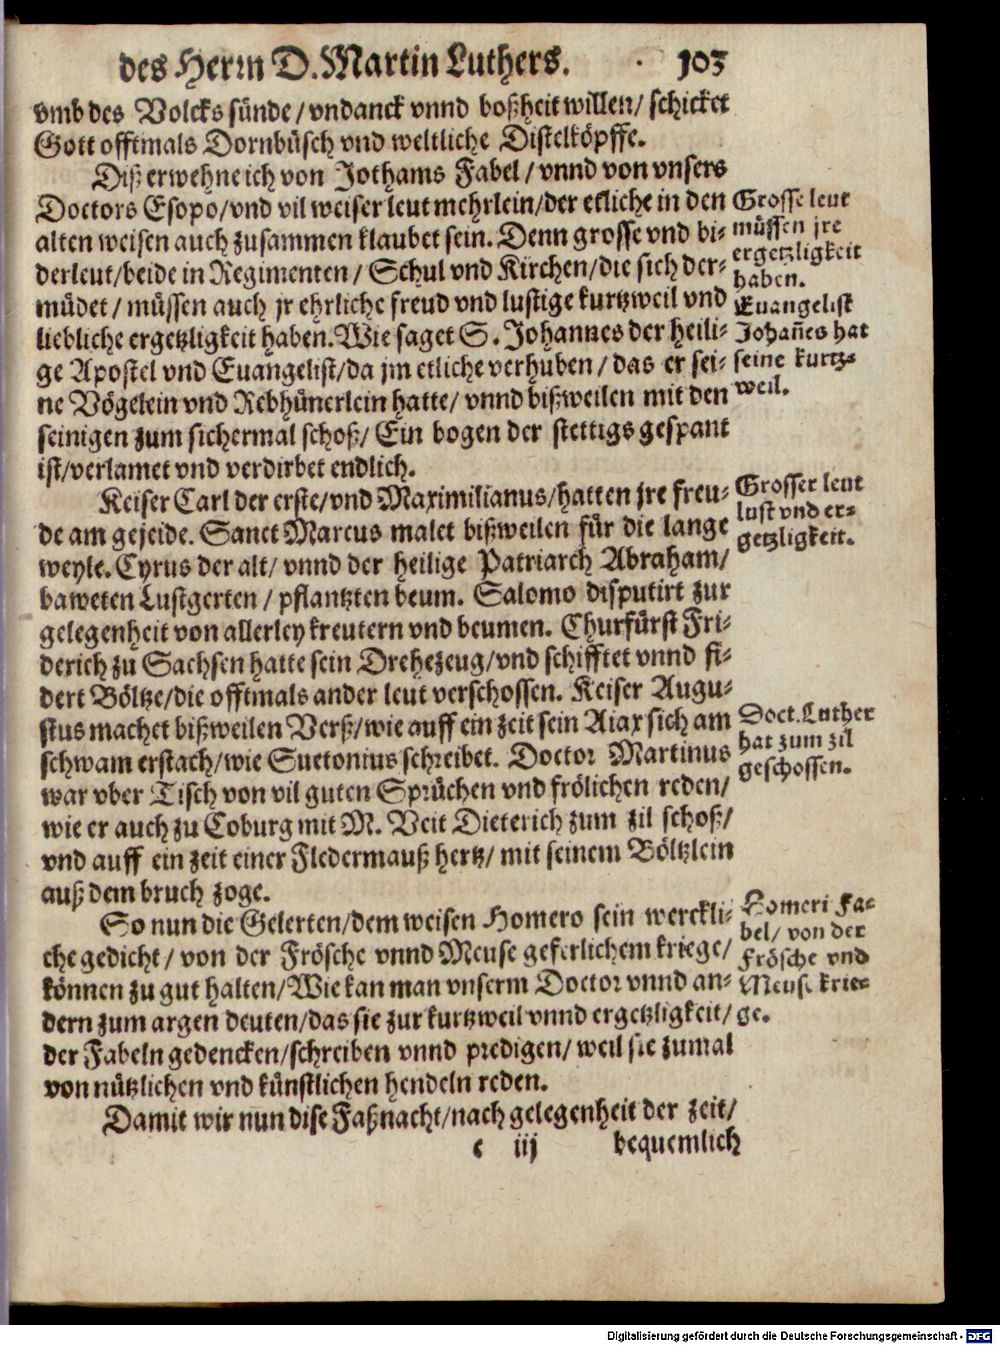 des Herrn D. Martin Luthers. 103
vmb des Volcks sünde / vndanck vnnd boßheit willen / schicket
Gott offtmals Dornbüsch vnd weltliche Distelköpffe.
Diß erwehne ich von Jothams Fabel / vnnd von vnsers
Doctors Esopo / vnd vil weiser leut mehrlein / der etliche in den
alten weisen auch zusammen klaubet sein. Denn grosse vnd bi-
derleut / beide in Regimenten / Schul vnd Kirchen / die sich der-
müdet / müssen auch jr ehrliche freud vnd lustige kurtzweil vnd
liebliche ergetzligkeit haben. Wie saget S. Johannes der heili-
ge Apostel vnd Euangelist / da jm etliche verhuben / das er sei-
ne Vögelein vnd Rebhünerlein hatte / vnnd bißweilen mit den
seinigen zum sichermal schoß / Ein bogen der stettigs gespant
ist / verlamet vnd verdirbet endlich.
Grosse leut
müssen jre
ergetzligkeit
haben.
Euangelist
Johañes hat
seine kurtz-
weil.
Keiser Carl der erste / vnd Maximilianus / hatten jre freu-
de am gejeide. Sanct Marcus malet bißweilen für die lange
weyle. Cyrus der alt / vnnd der heilige Patriarch Abraham /
baweten Lustgerten / pflantzten beum. Salomo disputirt zur
gelegenheit von allerley kreutern vnd beumen. Churfürst Fri-
derich zu Sachsen hatte sein Drehezeug / vnd schifftet vnnd fi-
dert Böltze / die offtmals ander leut verschossen. Keiser Augu-
stus machet bißweilen Verß / wie auff ein zeit sein Aiax sich am
schwam erstach / wie Suetonius schreibet. Doctor Martinus
war vber Tisch von vil guten Sprüchen vnd frölichen reden /
wie er auch zu Coburg mit M. Veit Dieterich zum zil schoß /
vnd auff ein zeit einer Fledermauß hertz / mit seinem Böltzlein
auß dem bruch zoge.
Grosser leut
lust vnd er-
getzligkeit.
Doct. Luther
hat zum zil
geschossen.
So nun die Gelerten / dem weisen Homero sein werckli-
che gedicht / von der Frösche vnnd Meuse geferlichem kriege /
können zu gut halten / Wie kan man vnserm Doctor vnnd an-
dern zum argen deuten / das sie zur kurtzweil vnnd ergetzligkeit /
der Fabeln gedencken / schreiben vnnd predigen / weil sie zumal
von nützlichen vnd künstlichen hendeln reden.
Homeri Fa-
bel / von der
Frösche vnd
Meuse krie-
ge.
Damit wir nun dise Faßnacht / nach gelegenheit der zeit /
e iij bequemlich
Digitalisierung gefördert durch die Deutsche Forschungsgemeinschaft - DFG